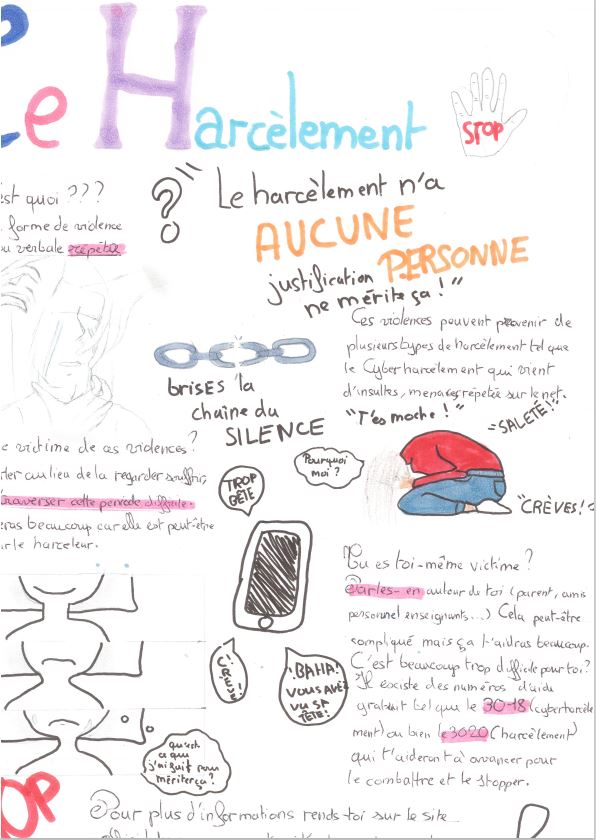 Le Harcèlement
STOP
est quoi ???
forme de violence
ou verbale répétée
?
"Le harcèlement n'a
AUCUNE
justification PERSONNE
ne mérite ça !"
Ces violences peuvent provenir de
plusieurs types de harcèlement tel que
le Cyber harcèlement qui vient
d'insultes, menaces répétée sur le net.
brises la
chaîne du
SILENCE
"T'es moche !"
"SALETÉ !"
"CRÈVES !"
Pourquoi
moi ?
TROP
BÊTE
e victime de ces violences ?
ter au lieu de la regarder souffrir,
traverser cette periode difficile.
eras beaucoup car elle est peut-être
ar le harceleur.
Tu es toi-même victime ?
Parles-en autour de toi (parent, amis
personnel enseignants...) Cela peut-être
compliqué mais ça t'aidras beaucoup.
C'est beaucoup trop difficile pour toi ?
Il existe des numéros d'aide
gratuit tel que le 30-18 (cyberharcèle
ment) ou bien le 3020 (harcèlement)
qui t'aideront à avancer pour
le combattre et le stopper.
CRÈVE !
BAHA !
VOUS AVEZ
VU SA
TÊTE !
qu'est
ce que
j'ai fait pour
mériter ça ?
OP
Pour plus d'informations rends toi sur le site